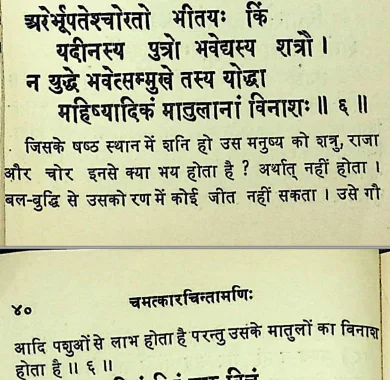 अरेर्भूपतेश्चोरतो भीतयः किं
यदीनस्य पुत्रो भवेद्यस्य शत्रौ ।
न युद्धे भवेत्सम्मुखे तस्य योद्धा
महिष्यादिकं मातुलानां विनाशः ॥ ६ ॥
जिसके षष्ठ स्थान में शनि हो उस मनुष्य को शत्रु, राजा
और चोर इनसे क्या भय होता है ? अर्थात् नहीं होता ।
बल-बुद्धि से उसको रण में कोई जीत नहीं सकता । उसे गौ
४० चमत्कारचिन्तामणिः
आदि पशुओं से लाभ होता है परन्तु उसके मातुलों का विनाश
होता है ॥ ६ ॥